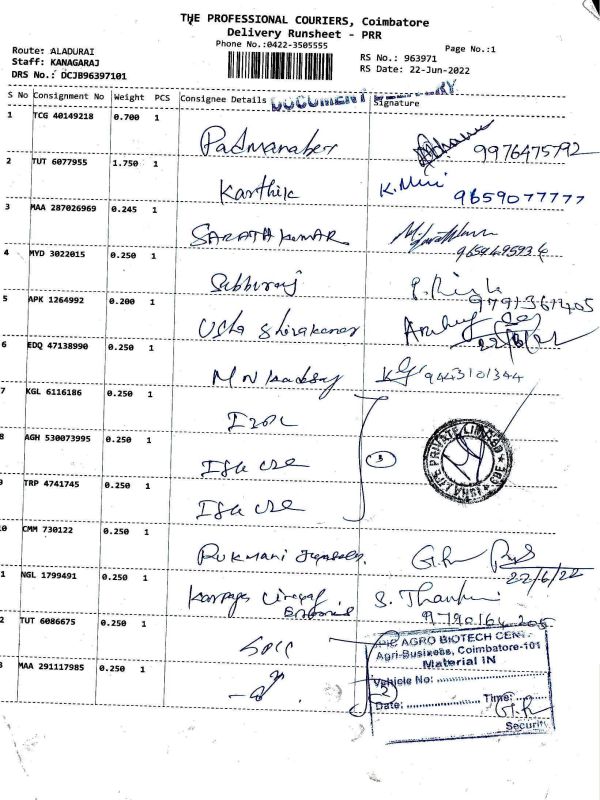 THE PROFESSIONAL COURIERS, Coimbatore
Delivery Runsheet - PRR
Phone No.:0422-3505555
Page No.:1
Route: ALADURAI
Staff: KANAGARAJ
DRS No.: DCJB96397101
RS No.: 963971
RS Date: 22-Jun-2022
S No Consignment No Weight PCS Consignee Details Signature
DOCUMENT DELIVERY
1 TCG 40149218 0.700 1
Padmanaber 9976475792
2 TUT 6077955 1.750 1
Karthik K. Mini 9659077777
3 MAA 287026969 0.245 1
SARATH KUMAR
4 MYD 3022015 0.250 1
Subburaj
5 APK 1264992 0.200 1
Usha 22/6/22
6 EDQ 47138990 0.250 1
9443101344
7 KGL 6116186 0.250 1
8 AGH 530073995 0.250 1
Isha 3
ISHA LIFE PRIVATE LIMITED
TRP 4741745 0.250 1
Isha
0 CMM 730122 0.250 1
Rukmani G.R
22/6/22
1 NGL 1799491 0.250 1
Karpaga S.
9790164205
2 TUT 6086675 0.250 1
AGRO BIOTECH CENT
Agri-Business, Coimbatore-101
Material IN
MAA 291117985 0.250 1
Vehicle No:
2
Date: Time:
G.R
Security